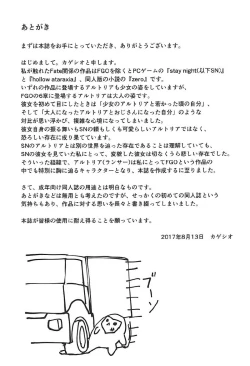 あとがき
まずは本誌をお手にとっていただき、ありがとうございます。
はじめまして。カゲシオと申します。
私が触れたFate関係の作品はFGOを除くとPCゲームの『stay night(以下SN)』
と『hollow ataraxia』、同人版の小説の『Zero』です。
いずれの作品に登場するアルトリアも少女の姿をしていますが、
FGOの6章に登場するアルトリアは大人の姿です。
彼女を初めて目にしたときは「少女のアルトリアと若かった頃の自分」、
そして「大人になったアルトリアとおじさんになった自分」のような
対比が思い浮かび、複雑な心境になってしまいました。
彼女自身の振る舞いもSNの頼もしくも可愛らしいアルトリアではなく、
恐ろしい存在に成り果てています。
SNのアルトリアとは別の世界を辿った存在であることは理解していても、
SNの彼女を見ていた私にとって、変貌した彼女は切なくうら悲しい存在でした。
そういった経緯で、アルトリア(ランサー)は私にとってFGOという作品の
中でも特別に胸に迫るキャラクターとなり、本誌を作成するに至りました。
さて、成年向け同人誌の用途とは明白なものです。
あとがきなどは無用とも考えたのですが、せっかくの初めての同人誌という
気持ちもあり、作品に対する思いを長々と書き綴ってしまいました。
本誌が皆様の使用に耐え得ることを願っています。
2017年8月13日 カゲシオ
ブーン